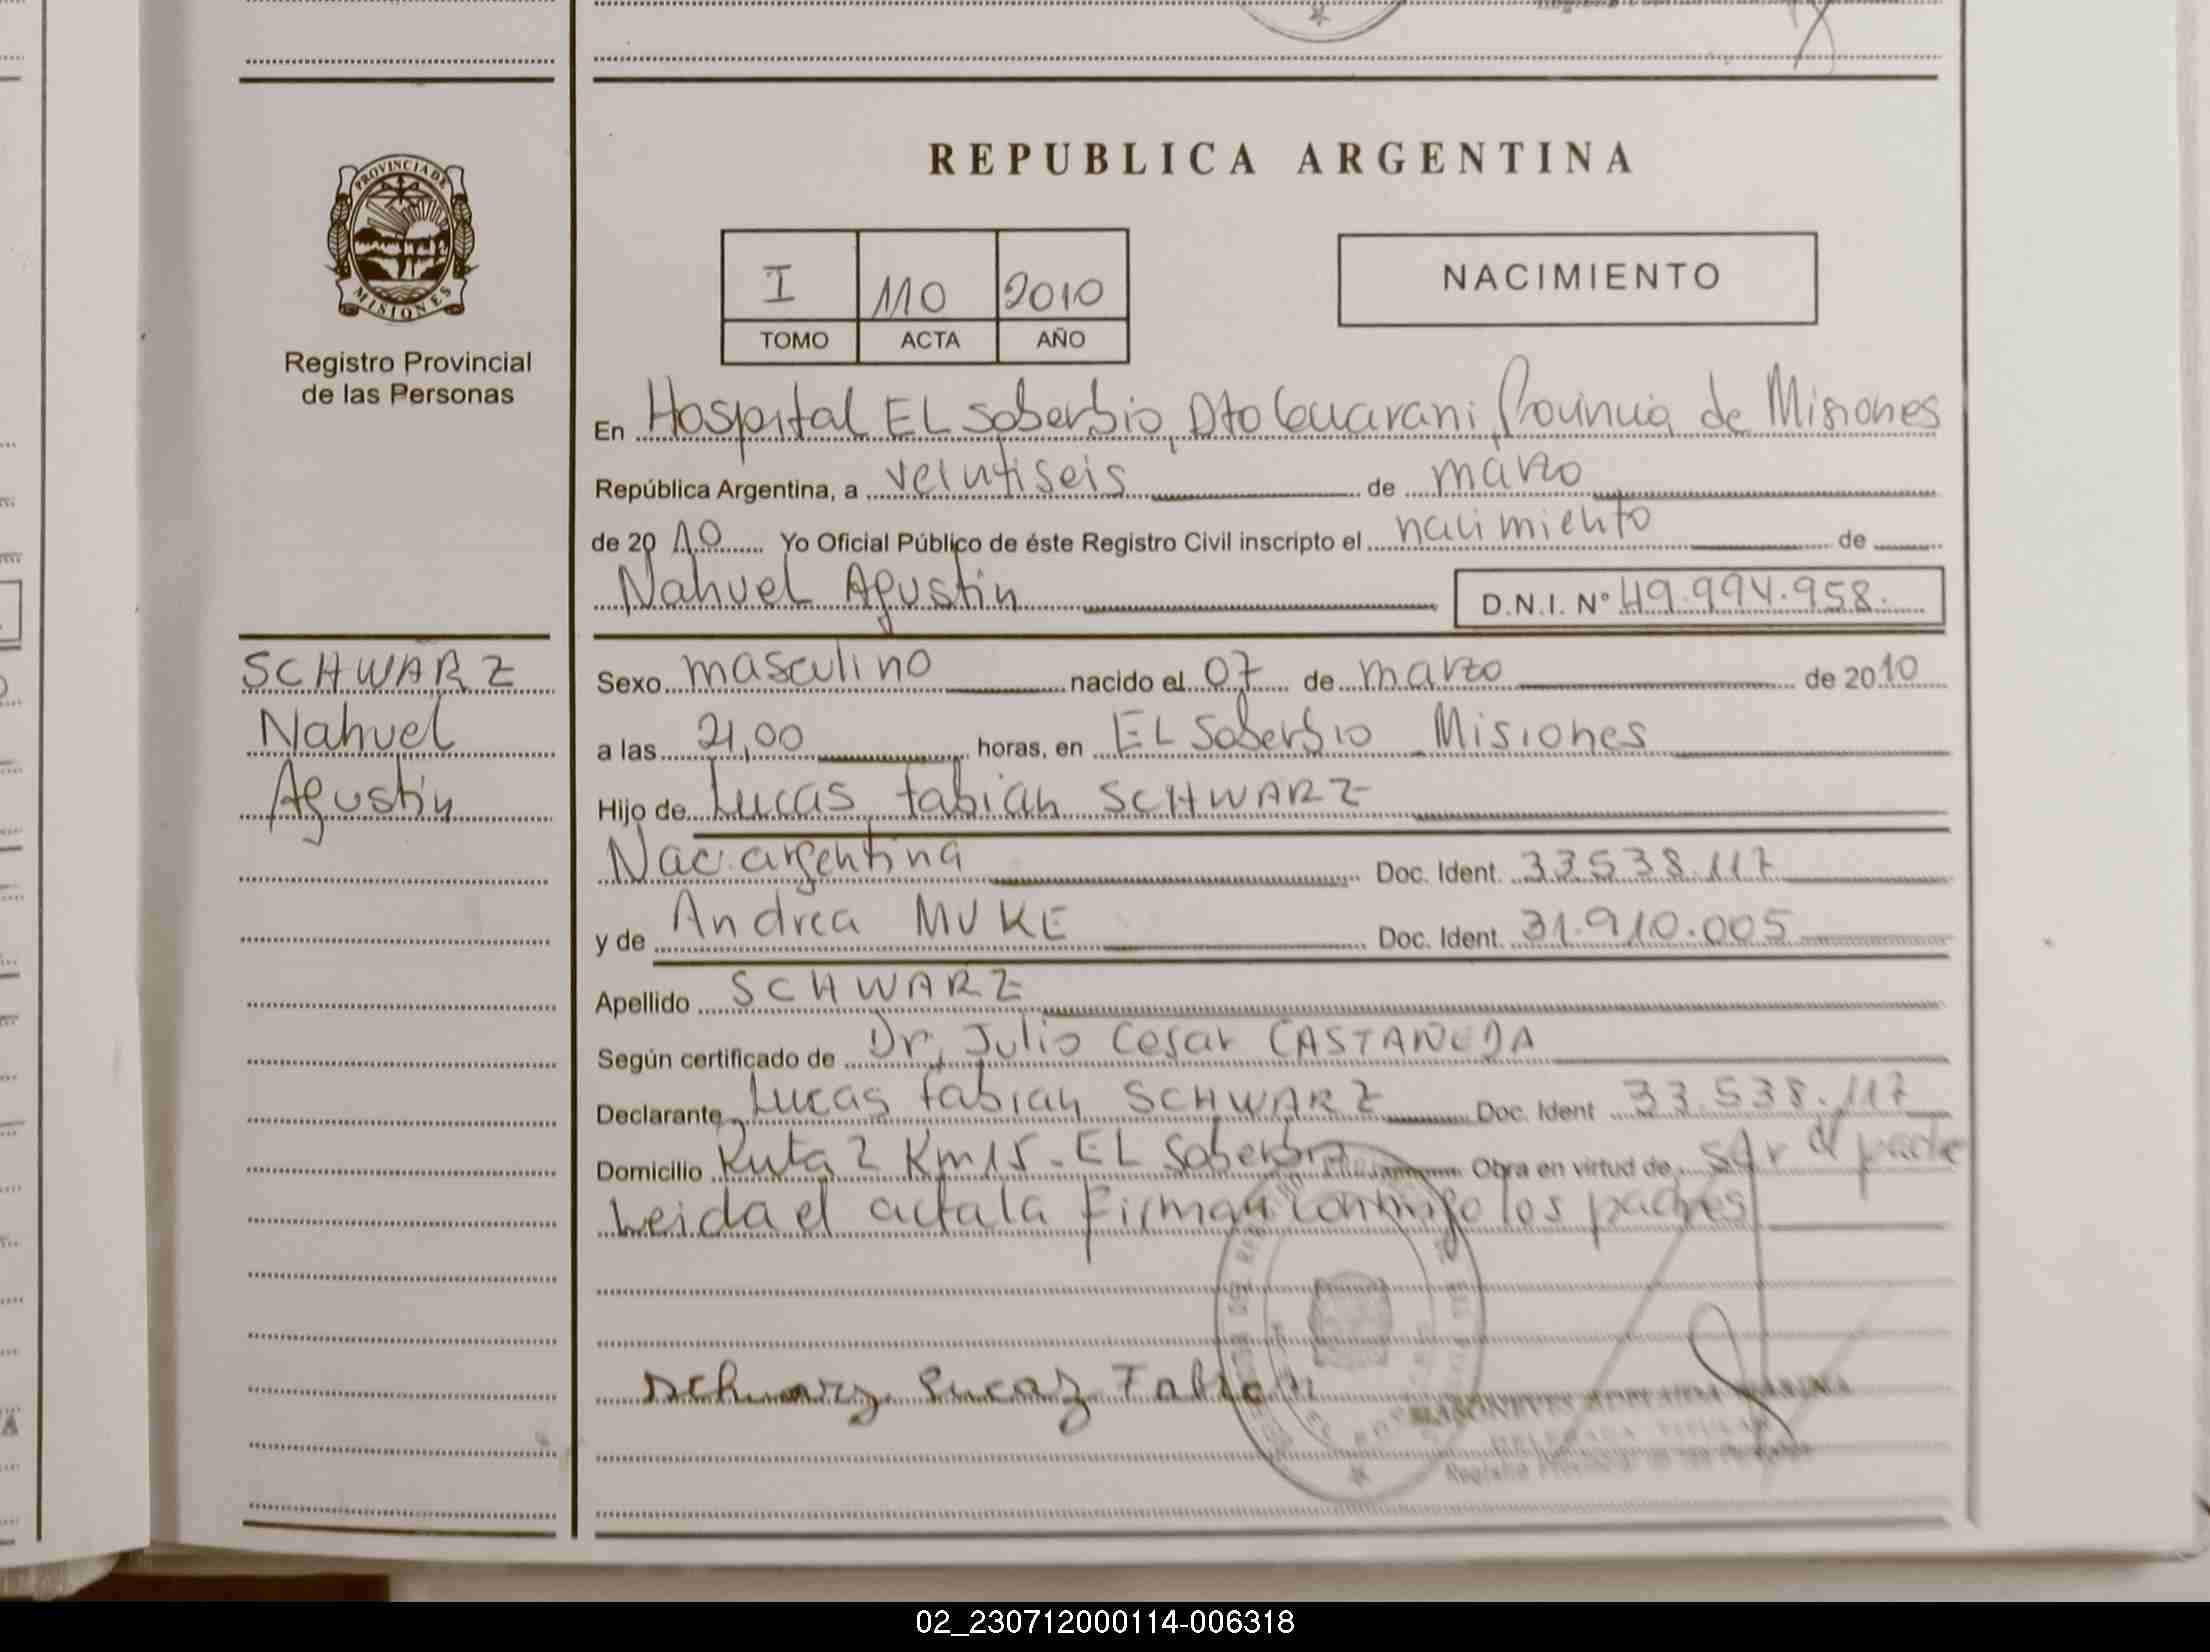 REPUBLICA ARGENTINA
PROVINCIA DE
MISIONES
Registro Provincial
de las Personas
I 110 2010
TOMO ACTA AÑO
NACIMIENTO
En Hospital EL Soberbio, Dto Guarani, Provincia de Misiones
República Argentina, a veintiseis de marzo
de 2010 Yo Oficial Público de éste Registro Civil inscripto el nacimiento de
Nahuel Agustin D.N.I. Nº 49.994.958.
SCHWARZ
Nahuel
Agustin
Sexo masculino nacido el 07 de marzo de 2010
a las 21,00 horas, en EL Soberbio Misiones
Hijo de Lucas Fabian SCHWARZ
Nac. argentina Doc. Ident. 33.538.117
y de Andrea MUKE Doc. Ident. 31.910.005
Apellido SCHWARZ
Según certificado de Dr. Julio Cesar CASTAÑEDA
Declarante Lucas Fabian SCHWARZ Doc. Ident 33.538.117
Domicilio Ruta 2 Km 15 - EL Soberbio Obra en virtud de ser el padre
Leida el acta la firman conmigo los padres
Schwarz Lucaz Fabian
Registro Provincial de las Personas
02_230712000114-006318